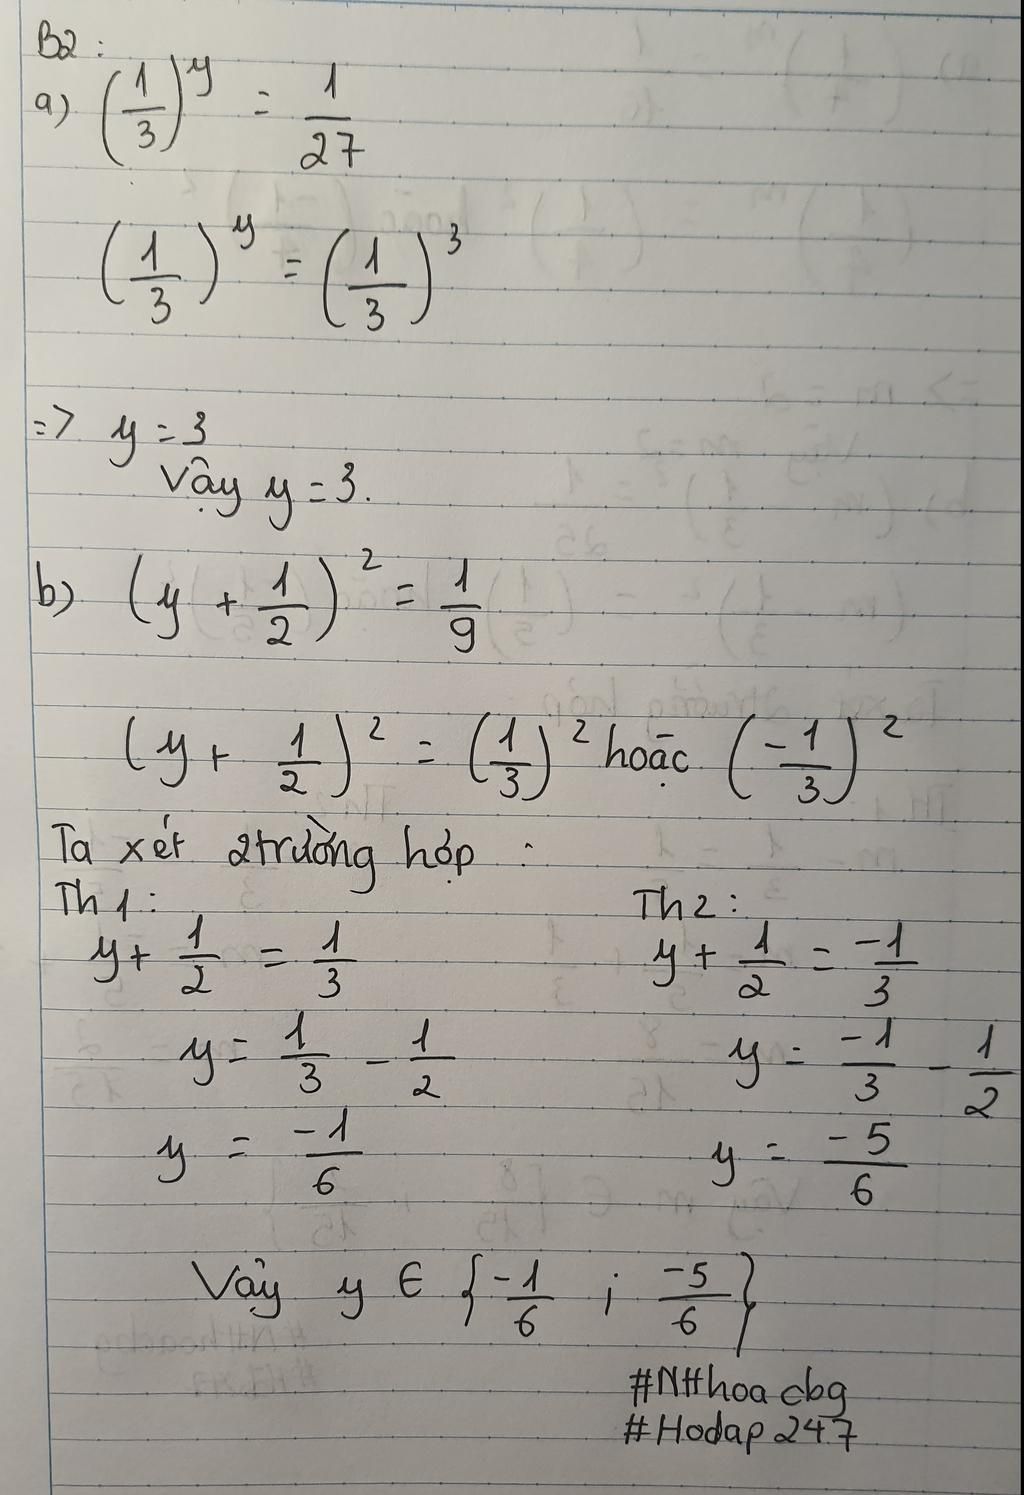 B2:
a) (1/3)^y = 1/27
(1/3)^y = (1/3)^3
=> y = 3
Vậy y = 3.
b) (y + 1/2)^2 = 1/9
(y + 1/2)^2 = (1/3)^2 hoặc (-1/3)^2
Ta xét 2 trường hợp :
Th1: Th2:
y + 1/2 = 1/3 y + 1/2 = -1/3
y = 1/3 - 1/2 y = -1/3 - 1/2
y = -1/6 y = -5/6
Vậy y ∈ {-1/6 ; -5/6}
#N#hoacbg
#Hodap247